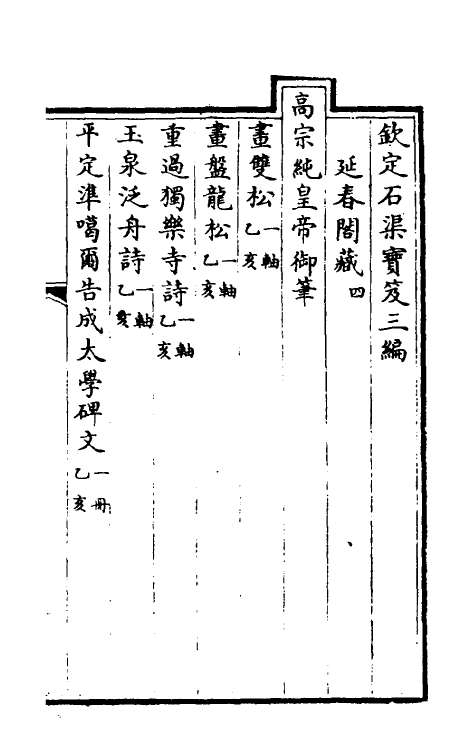 欽定石渠寶笈三編
延春閣藏四
高宗純皇帝御筆
畫雙松一軸乙亥
畫盤龍松一軸乙亥
重過獨樂寺詩一軸乙亥
玉泉泛舟詩一軸乙亥
平定準噶爾告成太學碑文一冊乙亥